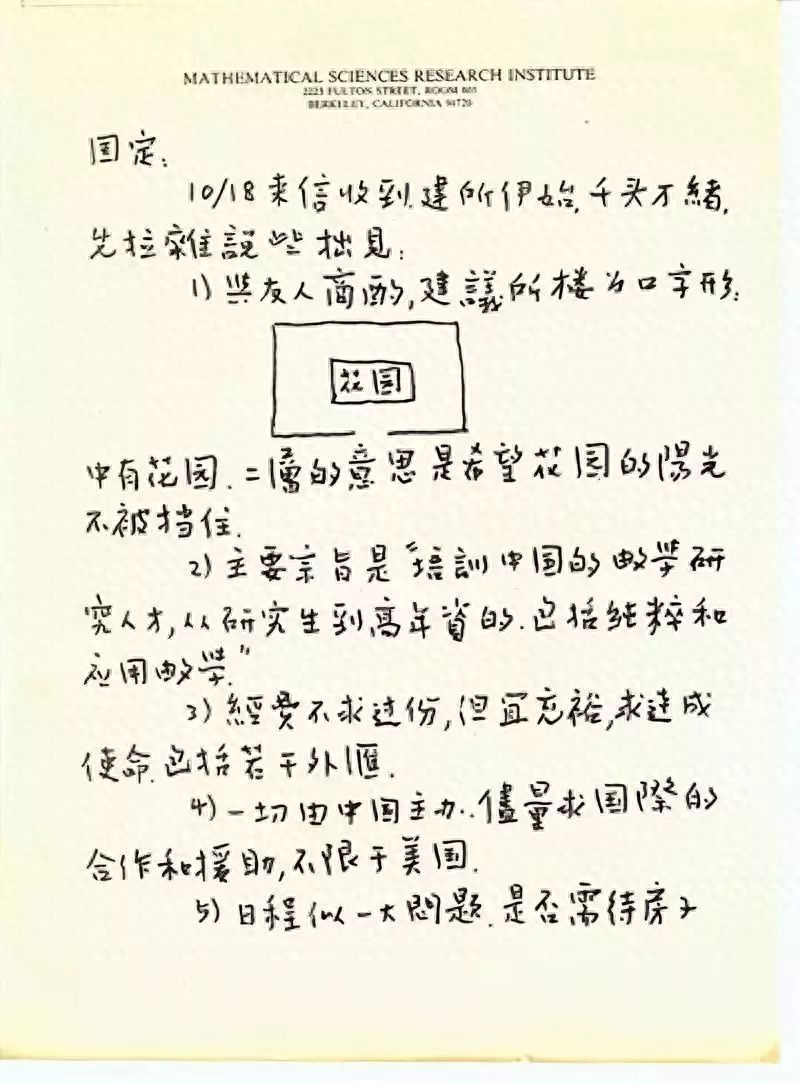 MATHEMATICAL SCIENCES RESEARCH INSTITUTE
2223 FULTON STREET, ROOM 603
BERKELEY, CALIFORNIA 94720
国定:
10/18来信收到.建所伊始,千头万緒,
先拉雜説些拙見:
1)与友人商酌,建議所楼为口字形:
花园
中有花园.二層的意思是希望花园的陽光
不被挡住.
2)主要宗旨是“培訓中国的数学研
究人才,从研究生到高年資的.包括純粹和
应用数学.”
3)經费不求过份,但宜充裕,求达成
使命.包括若干外匯.
4)一切由中国主办.儘量求国際的
合作和援助,不限于美国.
5)日程似一大問題.是否需待房子